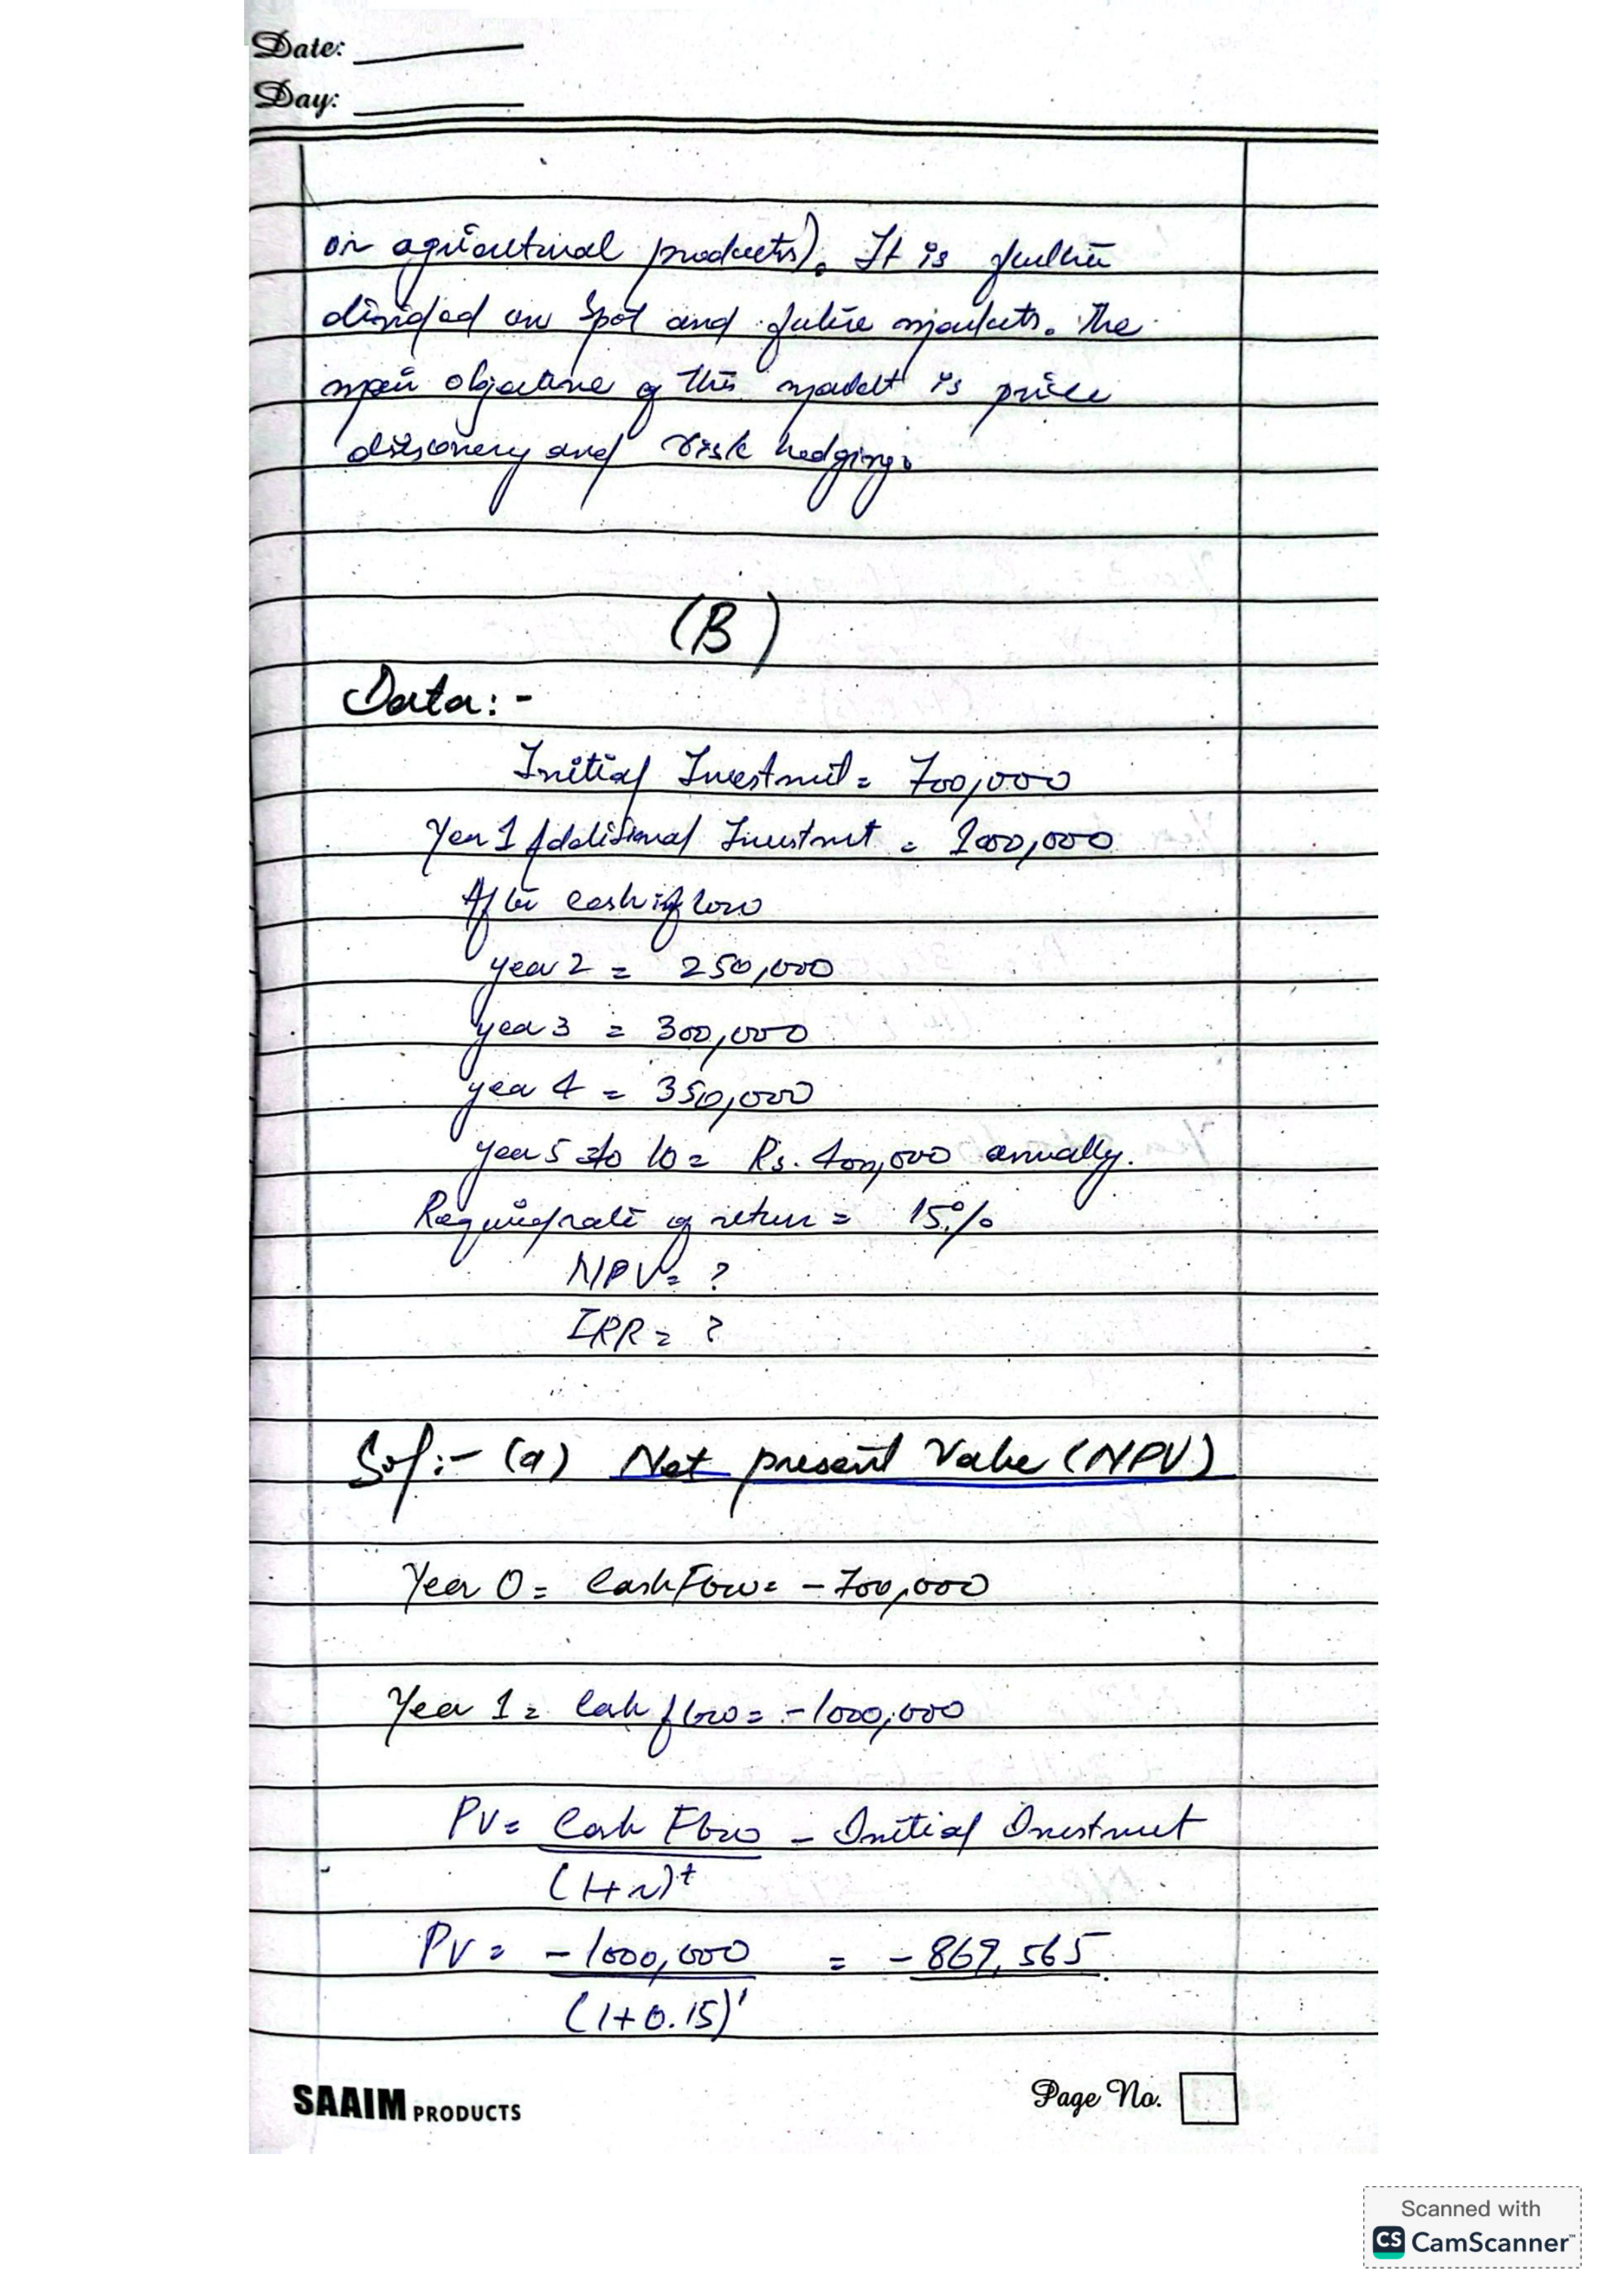 Date:
Day:
or agricultural products). It is further
divided on Spot and future markets. The
main objective of this market is price
discovery and risk hedging.
(B)
Data:-
Initial Investment = 700,000
Year 1 Additional Investment = 1000,000
After cash inflow
year 2 = 250,000
year 3 = 300,000
year 4 = 350,000
year 5 to 10 = Rs. 400,000 annually.
Required rate of return = 15%
NPV = ?
IRR = ?
Sol:- (a) Net present Value (NPV)
Year 0 = Cash Flow = -700,000
Year 1 = Cash flow = -1000,000
PV = Cash Flow - Initial Investment
(1+r)^t
PV = -1000,000 = -869,565
(1+0.15)^1
SAAIM PRODUCTS
Page No.
Scanned with
CS CamScanner